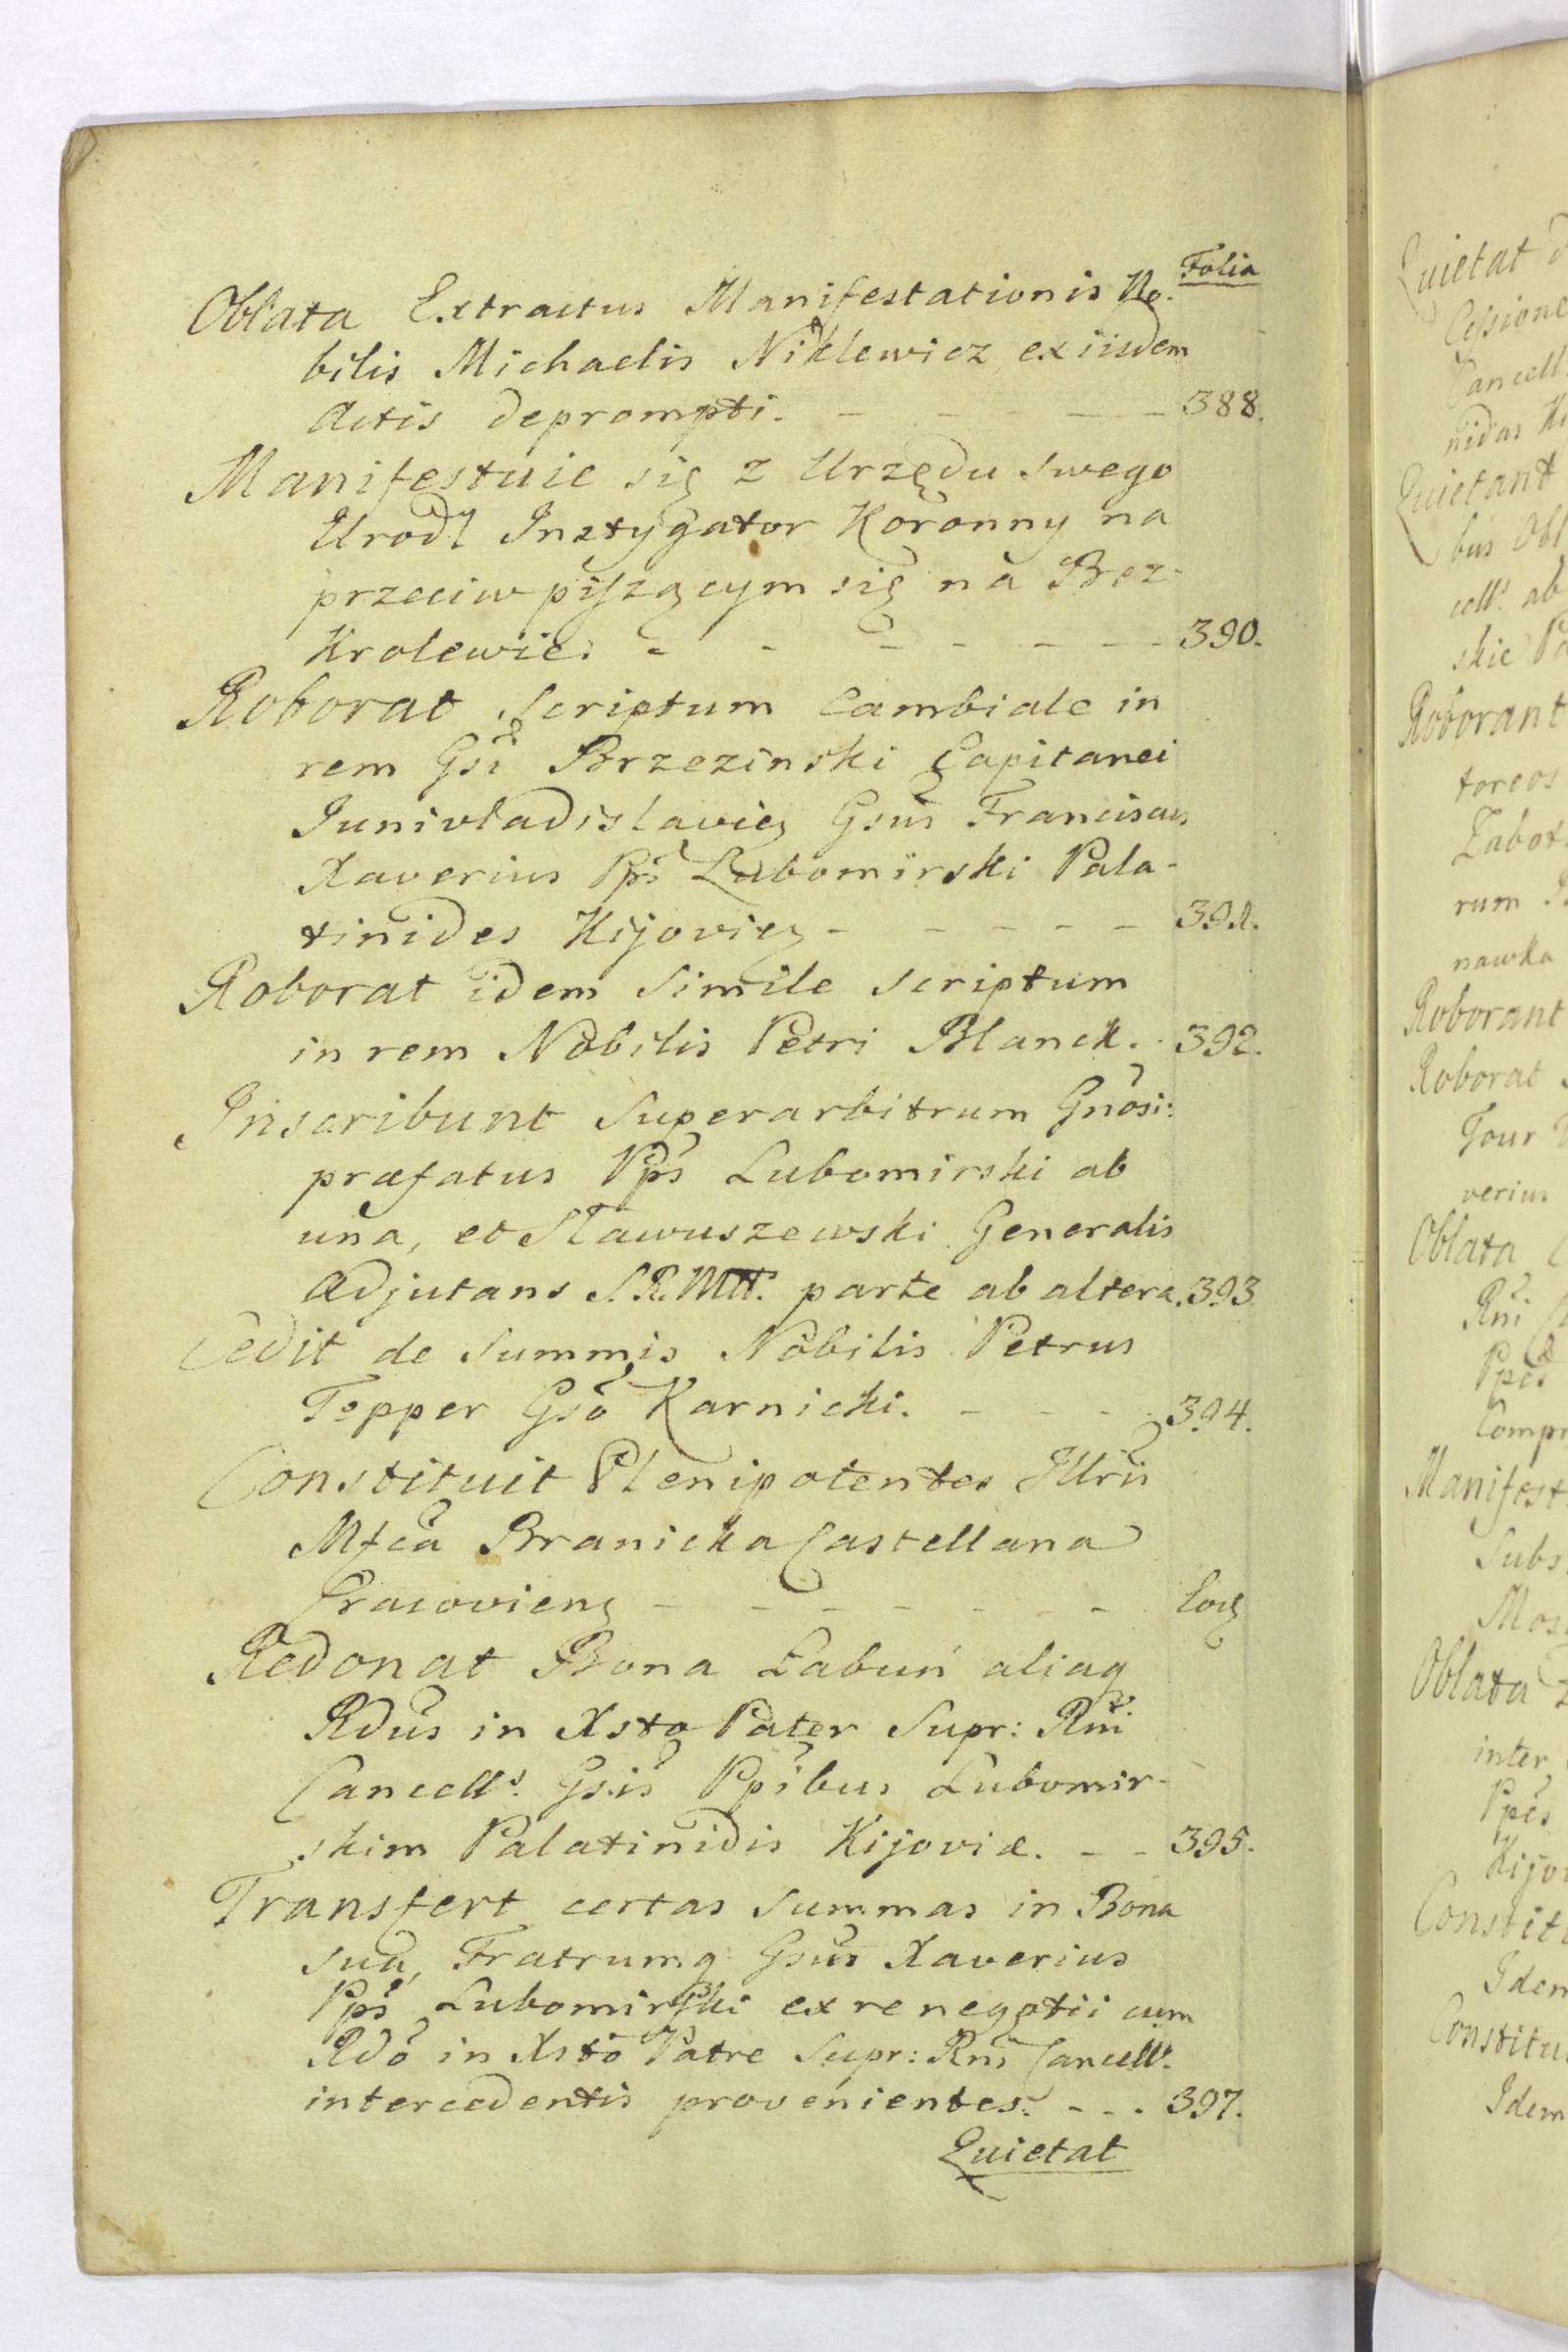 Folia
Oblata Extractus Manifestationis No-
bilis Michaelis Niklewicz, ex iisdem
Actis deprompti. - - - - 388.
Manifestuie się z Urzędu swego
Urodł Instygator Koronny na
przeciw piszącym się na Bez-
Krolewie. - - - - - - 390.
Roborat Scriptum Cambiale in
rem Gsi Brzezinski Capitanei
Junivladislavieņ Gsus Franciscus
Xaverius Pps Lubomirski Pala-
tinides Kijovieņ - - - - - 391.
Roborat idem simile scriptum
in rem Nobilis Petri Blanck. . 392.
Inscribunt Superarbitrum Gnosi:
præfatus Pps Lubomirski ab
una, et Sławuszewski Generalis
Adjutans S.R.Mtt. parte ab altera. 393.
Cedit de Summis Nobilis Petrus
Tepper Gso Karnicki. - - - 394.
Constituit Plenipotentes Illris
Mfca Branicka Castellana
Cracovieņs - - - - - - - Eođ
Redonat Bona Łabuń aliaq
Rdus in Xsto Pater Supr: Rni
Cancells. Gsis Ppibus Lubomir-
skim Palatinidis Kijoviæ. - - 395.
Transfert certas summas in Bona
sua, Fratrumq Gsus Xaverius
Pps Lubomirski ex re negotii cum
Rdo in Xsto Patre Supr: Rni Cancells.
intercedentis provenientes. - - - 397.
Quietat
Quietat
Cessione
Cancell
nidas Ki
Quietant
bus Obl
cells. ab
skie Pa
Roborant
toreos
Zabot
rum
nawka
Roborant
Roborat
Jour
verius
Oblata
Rni
Ppes
Compr
Manifest
Subs
Mos
Oblata
inter
Ppes
Kijov
Constit
Idem
Constitu
Idem